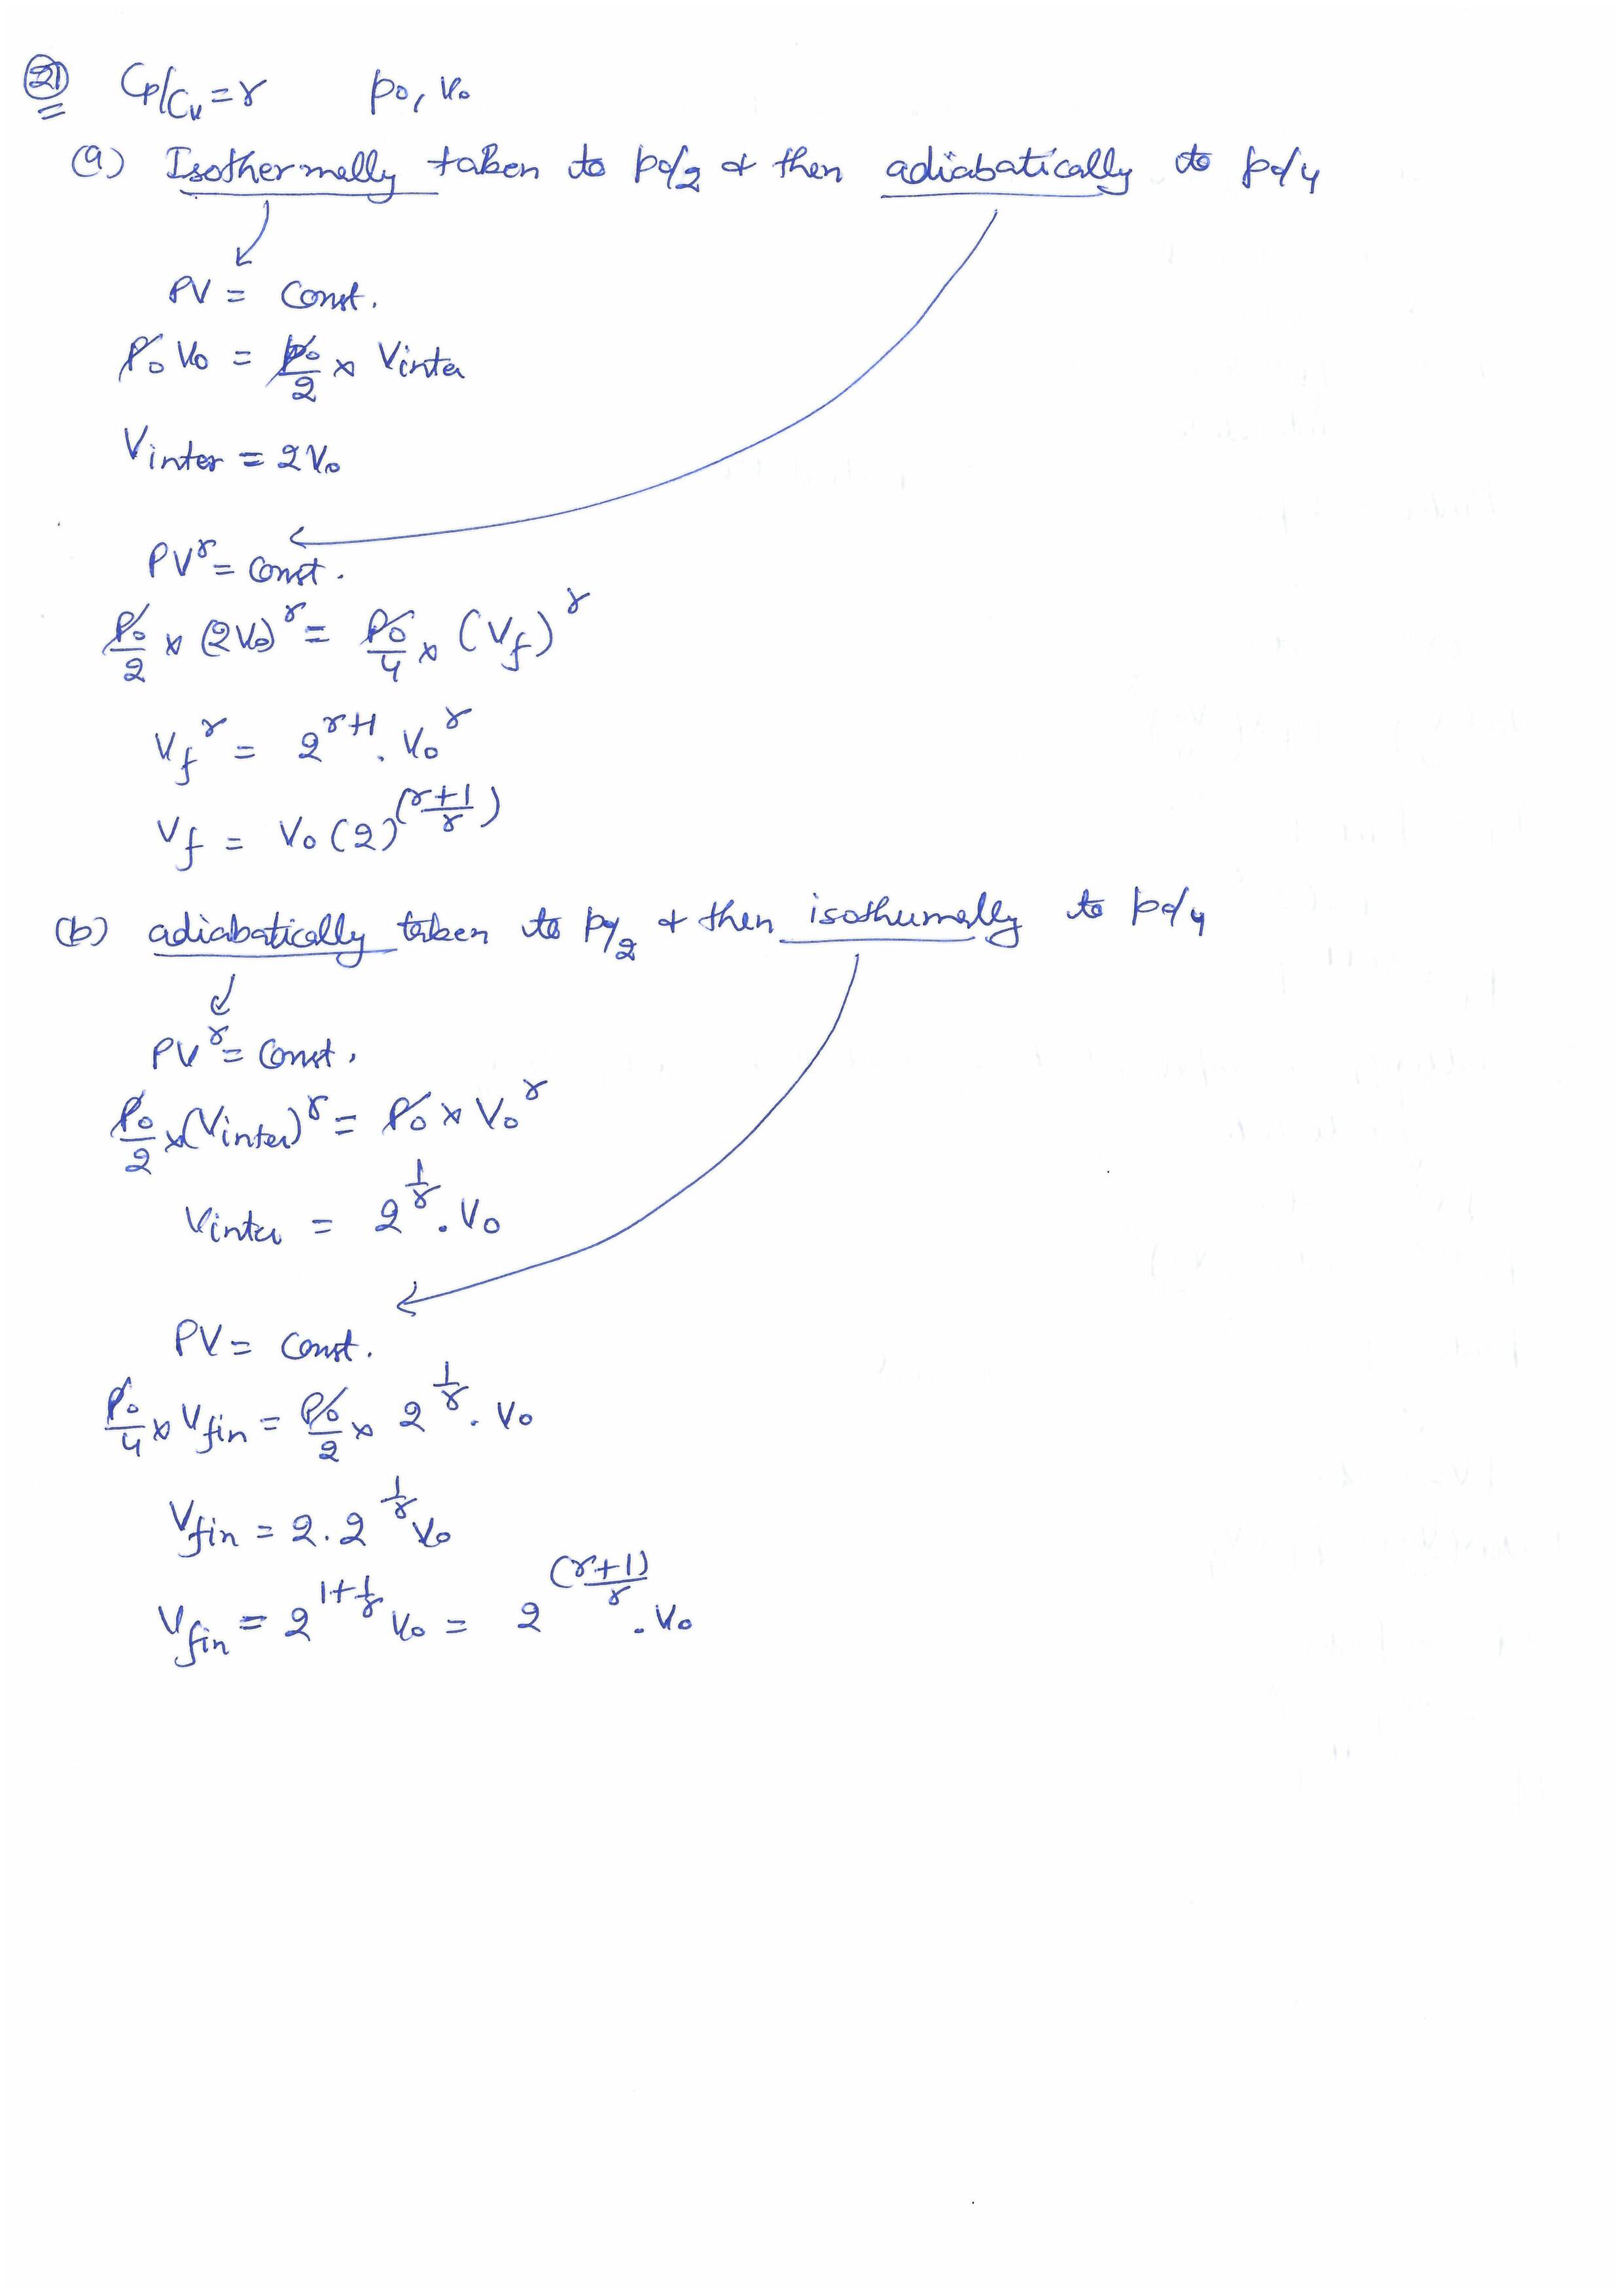 21 Cp/Cv = γ p₀, V₀
(a) Isothermally taken to p₀/2 & then adiabatically to p₀/4
PV = Const.
P₀ V₀ = p₀/2 × Vinter
Vinter = 2V₀
PV^γ = Const.
P₀/2 × (2V₀)^γ = P₀/4 × (Vf)^γ
Vf^γ = 2^(γ+1) . V₀^γ
Vf = V₀ (2)^((γ+1)/γ)
(b) adiabatically taken to p₀/2 & then isothermally to p₀/4
PV^γ = Const.
P₀/2 × (Vinter)^γ = P₀ × V₀^γ
Vinter = 2^(1/γ) . V₀
PV = Const.
P₀/4 × Vfin = P₀/2 × 2^(1/γ) . V₀
Vfin = 2 . 2^(1/γ) V₀
Vfin = 2^(1+1/γ) V₀ = 2^((γ+1)/γ) . V₀